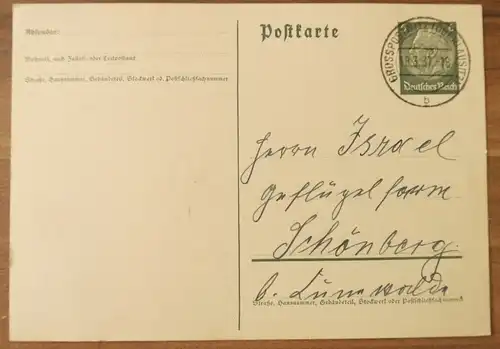 Absender:
Wohnort, auch Zustell- oder Leitpostamt
Straße, Hausnummer, Gebäudeteil, Stockwerk od. Postschließfachnummer
Postkarte
Deutsches Reich
b
Herrn Israel
Geflügelfarm
Schönberg
b. Cunewalde
Straße, Hausnummer, Gebäudeteil, Stockwerk oder Postschließfachnummer